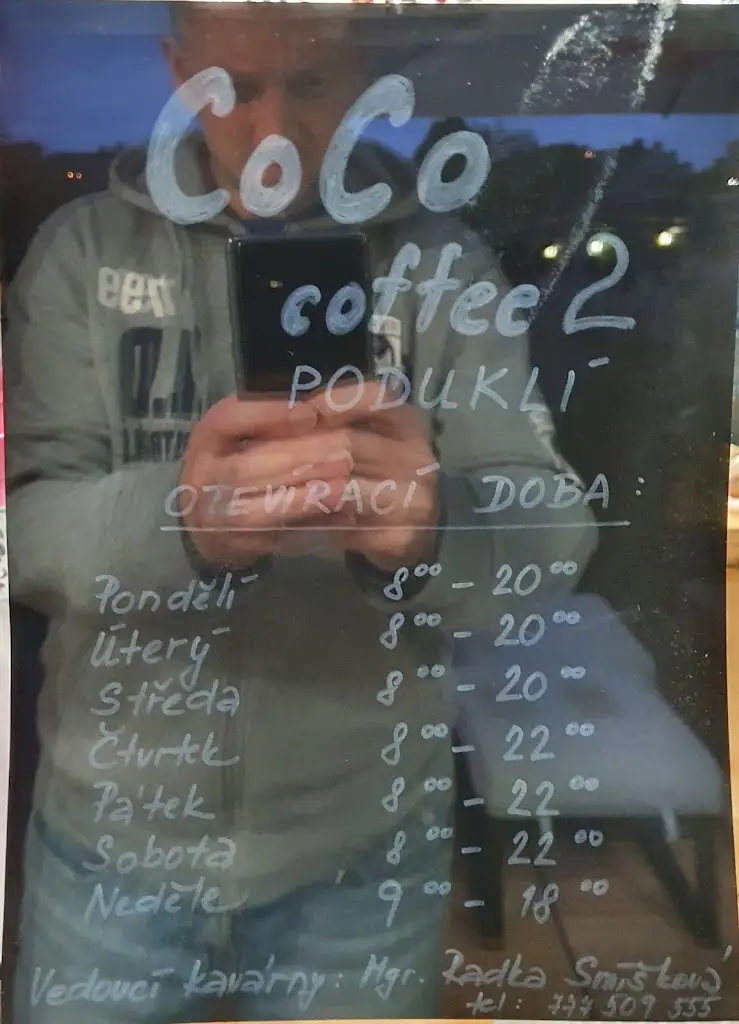 CoCo
coffee 2
PODUKLÍ
OTEVÍRACÍ DOBA:
Pondělí 8⁰⁰ - 20⁰⁰
Úterý 8⁰⁰ - 20⁰⁰
Středa 8⁰⁰ - 20⁰⁰
Čtvrtek 8⁰⁰ - 22⁰⁰
Pátek 8⁰⁰ - 22⁰⁰
Sobota 8⁰⁰ - 22⁰⁰
Neděle 9⁰⁰ - 18⁰⁰
Vedoucí kavárny: Mgr. Radka Smíšková
tel: 777 509 555